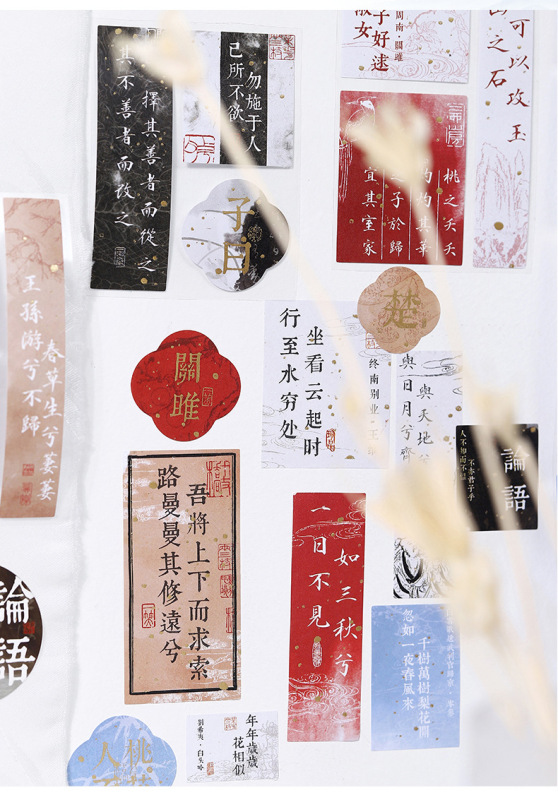 擇其善者而從之
其不善者而改之
己所不欲
勿施于人
子曰
周南·關雎
子好逑
女
可以攻玉
之石
桃之夭夭
灼其華
子於歸
宜其室家
王孫游兮不歸
春草生兮萋萋
楚
關雎
行至水穷处
坐看云起时
终南别业·王
與天地兮
與日月兮齊
論語
人不知而不慍
不亦君子乎
路曼曼其修遠兮
吾將上下而求索
一日不見
如三秋兮
忽如一夜春風來
千樹萬樹梨花開
論語
年年歲歲
花相似
劉希夷·白頭吟
桃
人